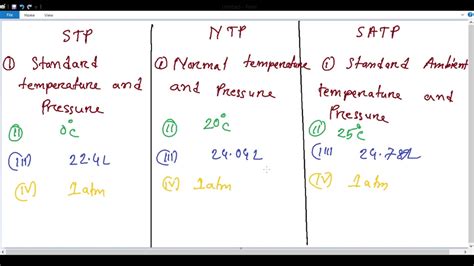 File Home View
STP
(i) Standard
temperature and
Pressure
(ii) 0°C
(iii) 22.4L
(iv) 1atm
NTP
(i) Normal temperature
and Pressure
(ii) 20°C
(iii) 24.04L
(iv) 1atm
SATP
(i) Standard Ambient
temperature and
Pressure
(ii) 25°C
(iii) 24.78L
(iv) 1atm